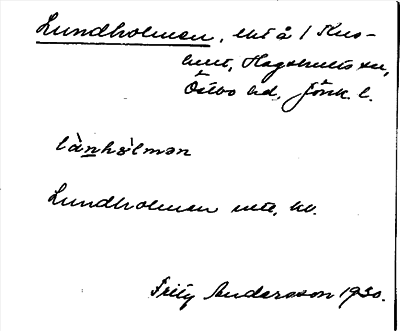 Lundholmen, ⟨utå⟩ / Knus-
hult, Hagshults sn,
Östbo hd, Jönk. l.
lànhòlmən
Lundholmen
Fritz Andersson 1930.